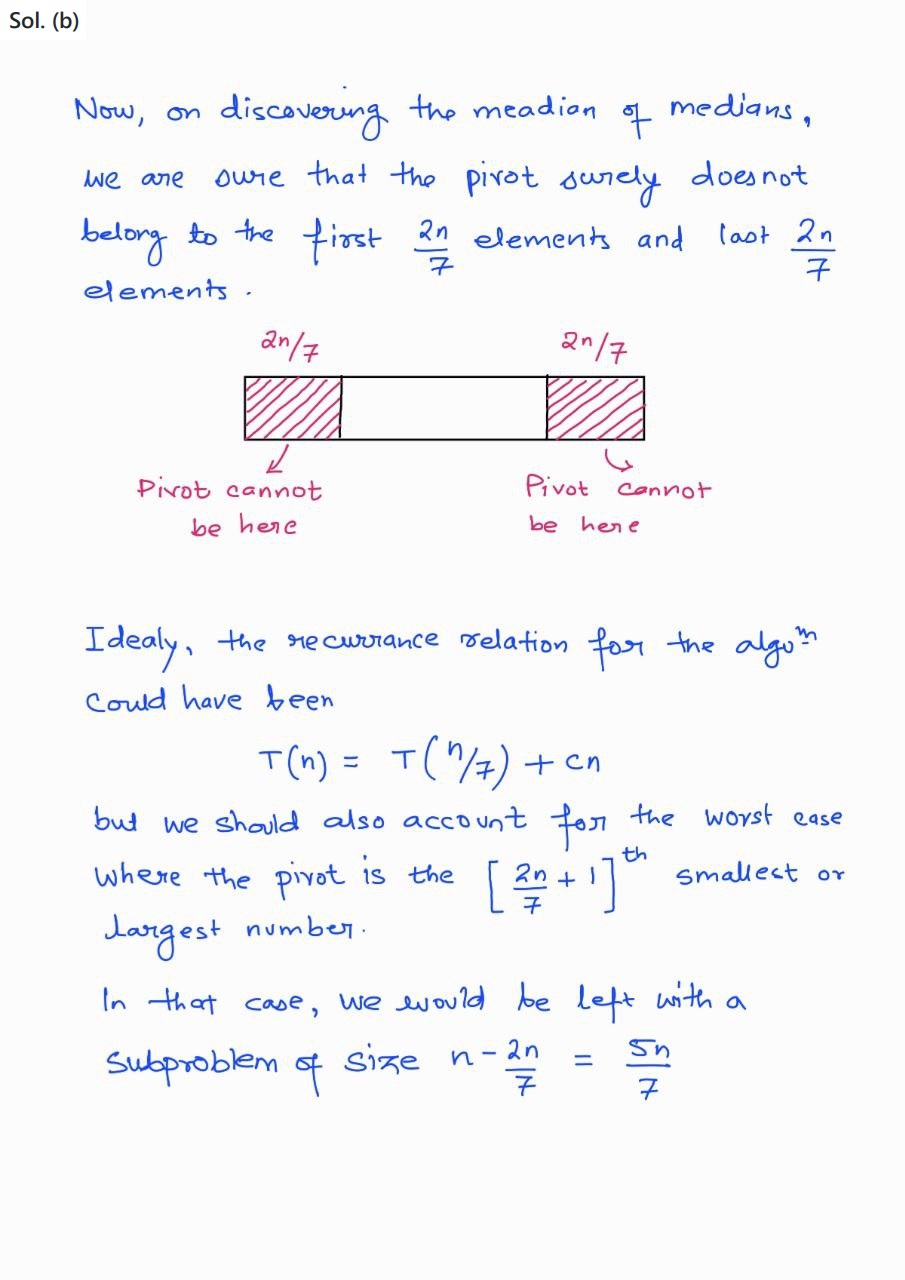 Sol. (b)
Now, on discovering the meadian of medians,
we are sure that the pivot surely does not
belong to the first 2n/7 elements and last 2n/7
elements.
2n/7 2n/7
Pivot cannot Pivot cannot
be here be here
Idealy, the recurrance relation for the algoᵐ
Could have been
T(n) = T(n/7) + cn
but we should also account for the worst case
where the pivot is the [2n/7 + 1]ᵗʰ smallest or
largest number.
In that case, we would be left with a
subproblem of size n - 2n/7 = 5n/7